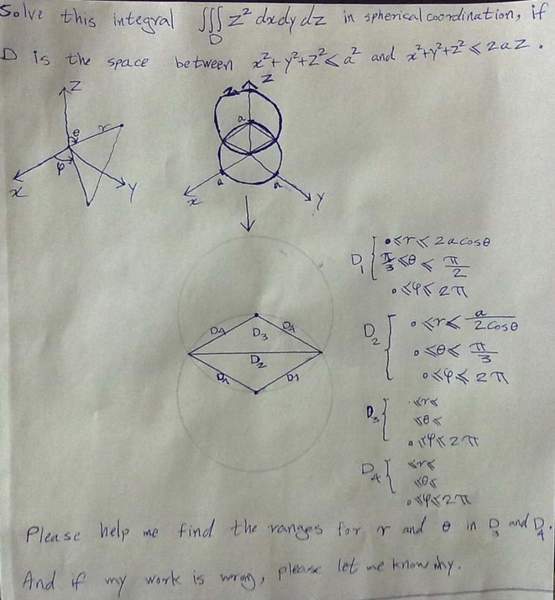 Solve this integral ∭ z² dxdydz in spherical coordination, if
D
D is the space between x²+y²+z² ⩽ a² and x²+y²+z² ⩽ 2az.
z
θ
r
φ
x
y
z
2a
a
a
a
x
y
D4
D3
D4
D2
D1
D1
D1 { 0⩽r⩽ 2acosθ
π/3 ⩽θ⩽ π/2
0⩽φ⩽2π
D2 { 0⩽r⩽ a/2cosθ
0⩽θ⩽ π/3
0⩽φ⩽2π
D3 { ⩽r⩽
⩽θ⩽
0⩽φ⩽2π
D4 { ⩽r⩽
⩽θ⩽
0⩽φ⩽2π
Please help me find the ranges for r and θ in D3 and D4.
And if my work is wrong, please let me know why.